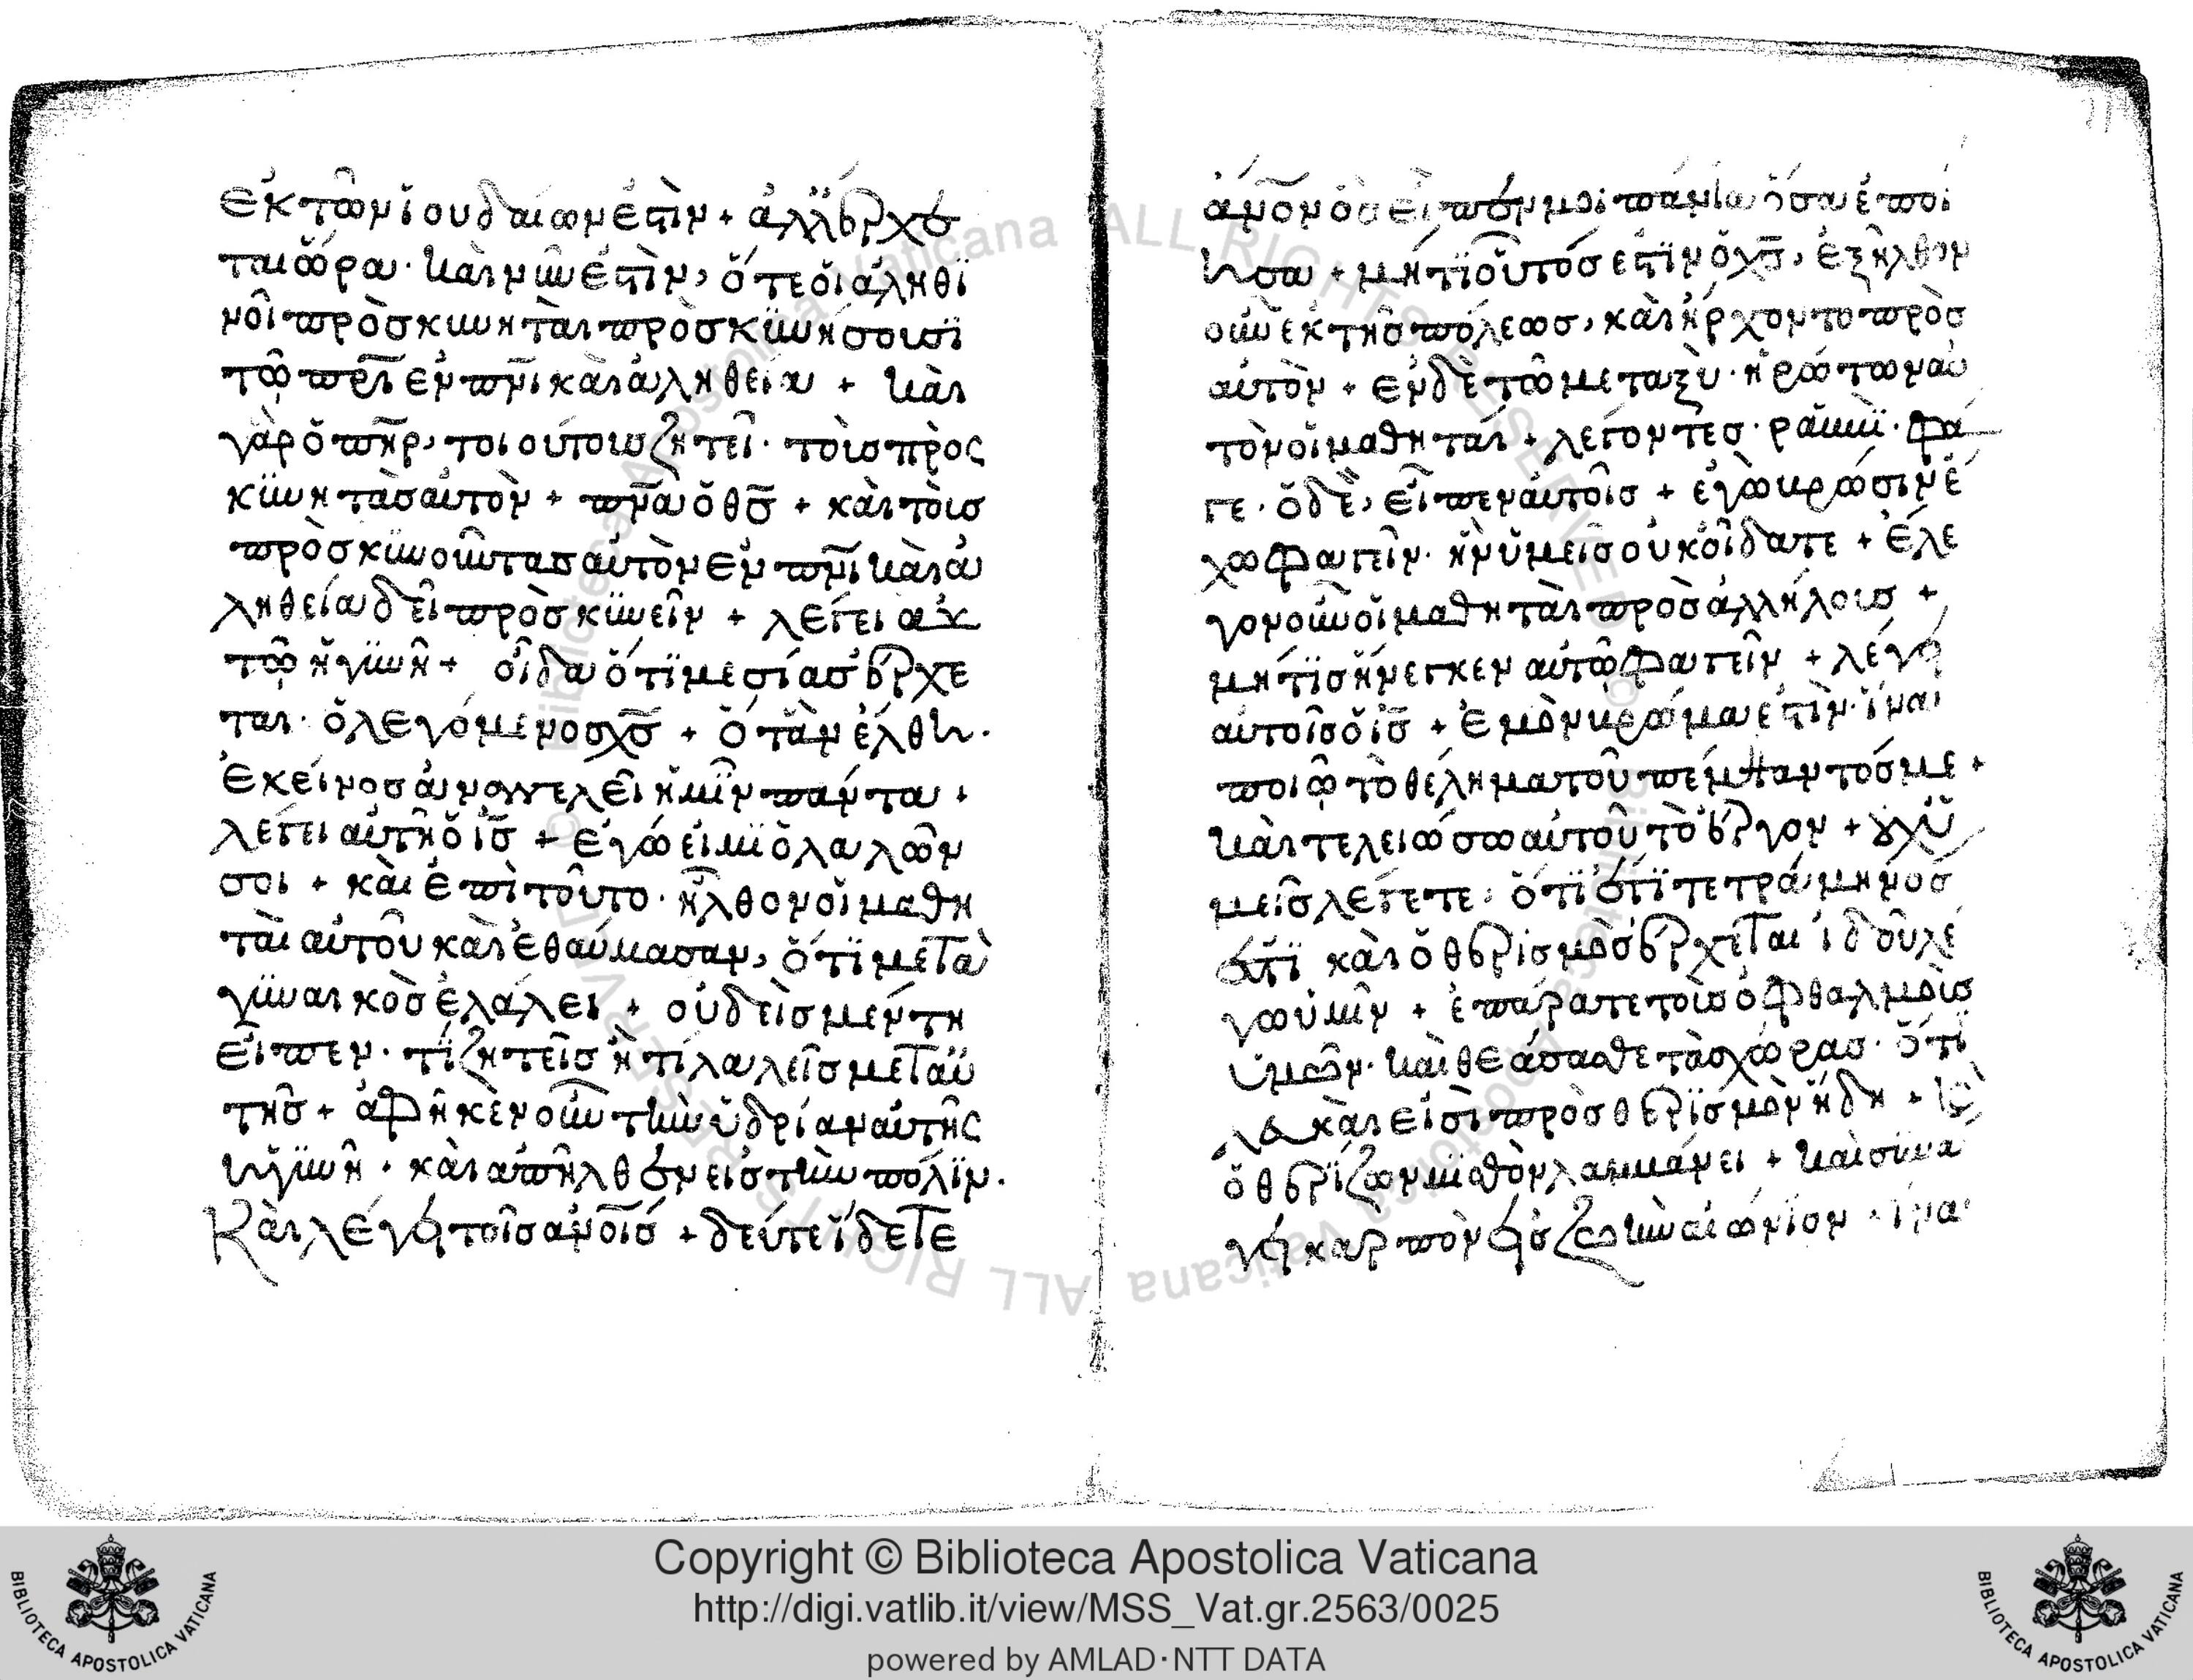 ἐκ τῶν ἰουδαίων ἐστὶν + ἀλλἔρχε
ται ὥρα · καὶ νῦν ἐστὶν, ὅτε οἱ ἀληθϊ
νοὶ πρὸσκυνηταὶ πρὸσκϋνήσουσϊ
τῶ πρῑ ἐν πνῑ καὶ ἀληθεία + καὶ
γὰρ ὁ πῆρ, τοιούτους ζητεῖ · τοὺς πρὸς
κϋνητὰς αὐτὸν + πνᾱ ὁ θς̄ + καὶ τοὺς
πρὸσκϋνοῦντας αὐτὸν ἐν πνῑ καὶ ἀ
ληθεία δεῖ πρὸσκϋνεῖν + λέγει αυ
τῶ ἡ γϋνὴ + οἶδα ὅτϊ μεσίας ἔρχε
ται · ὁ λεγόμενος χς̄ + ὅτὰν ἔλθη ·
Ἐκείνος ἀναγγελεῖ ἡμῖν πάντα +
λέγει αὐτῆ ὁ ις̄ + ἐγώ εἰμϊ ὁ λαλῶν
σοι + καὶ ἐπὶ τοῦτο · ἦλθον οἱ μαθη
ταὶ αὐτοῦ καὶ ἐθαύμασαν, ὅτϊ μετὰ
γϋναικὸς ἐλάλει + οὐδεὶς μέντη
εἶπεν · τί ζητεῖς ἢ τί λαλεῖς μετ αὐ
τῆς + ἀφῆκὲν οὖν τὴν ὑδρίαν αὐτῆς
ἡ γϋνὴ · καὶ ἀπῆλθεν εἰς τὴν πόλϊν ·
Καὶ λέγει τοῖς ἀνοῖς + δεύτε ἴδετε
ἀνον̄ ὃς εἶπέν μοι πάντα ὅσα ἐποί
ησα + μήτϊ οὗτός ἐστϊν ὁ χς̄, ἐξῆλθον
οὖν ἐκ τῆς πόλεως, καὶ ἤρχοντο πρὸς
αὐτὸν + ἐν δὲ τῶ μεταξὺ · ἠρώτων αὐ
τὸν οἱ μαθηταὶ + λέγοντες · ραββϊ · φά
γε · ὁ δὲ, εἶπεν αὐτοῖς + ἐγὼ βρῶσιν έ
χω φαγεῖν · ἣν ὑμεῖς οὐκ οἴδατε + Ἔλε
γον οὖν οἱ μαθηταὶ πρὸς ἀλλήλους +
μήτϊς ἤνεγκεν αὐτῶ φαγεῖν + λέγει
αὐτοῖς ὁ ις̄ + Ἐμὸν βρῶμα ἐστὶν · ἵνα
ποιῶ τὸ θέλημα τοῦ πέμψαντός με +
καὶ τελειώσω αὐτοῦ τὸ ἔργον + οὐχ ὑ
μεῖς λέγετε · ὅτϊ ἔτϊ τετράμηνος
ἐστϊ καὶ ὁ θερισμὸς ἔρχεται ἰδοῦ λέ
γω ὑμῖν + ἐπάρατε τοὺς ὀφθαλμοὺς
ὑμῶν · καὶ θεάσασθε τὰς χώρας · ὅτϊ
καὶ εἰσὶ πρὸς θερϊσμὸν ἤδη +
ὁ θερϊζων μϊσθὸν λαμβάνει + καὶ σϋνά
γει καρπὸν εἰς ζωὴν αἰώνϊον · ἵνα
Copyright © Biblioteca Apostolica Vaticana
http://digi.vatlib.it/view/MSS_Vat.gr.2563/0025
powered by AMLAD·NTT DATA